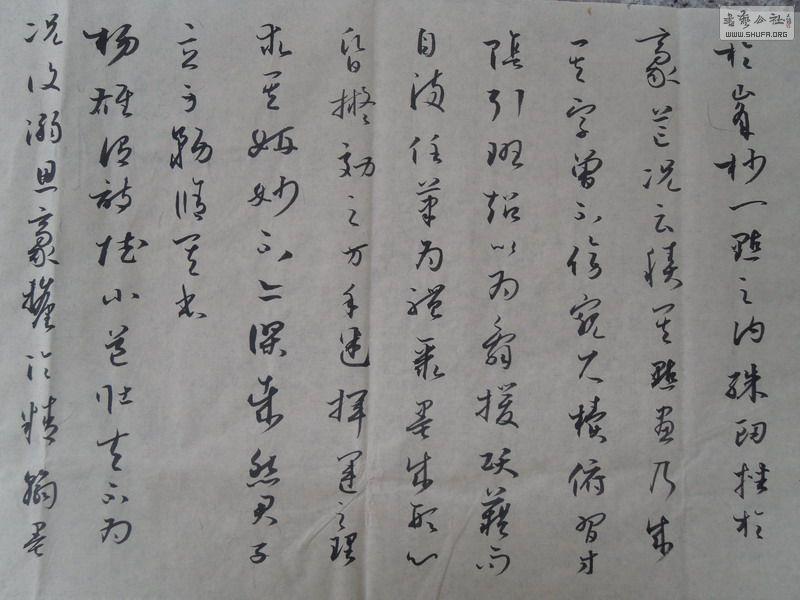 於峯杪一點之內殊衄挫於
豪芒況云積其點畫乃成
其字曾不傍窺尺牘俯習寸
陰引班超以為辭援項籍而
自滿任筆為體聚墨成形心
昏擬効之方手迷揮運之理
求其妍妙不亦謬哉然君子
立身務脩其本
楊雄謂詩賦小道壯夫不為
況復溺思豪釐淪精翰墨
書藝公社
WWW.SHUFA.ORG